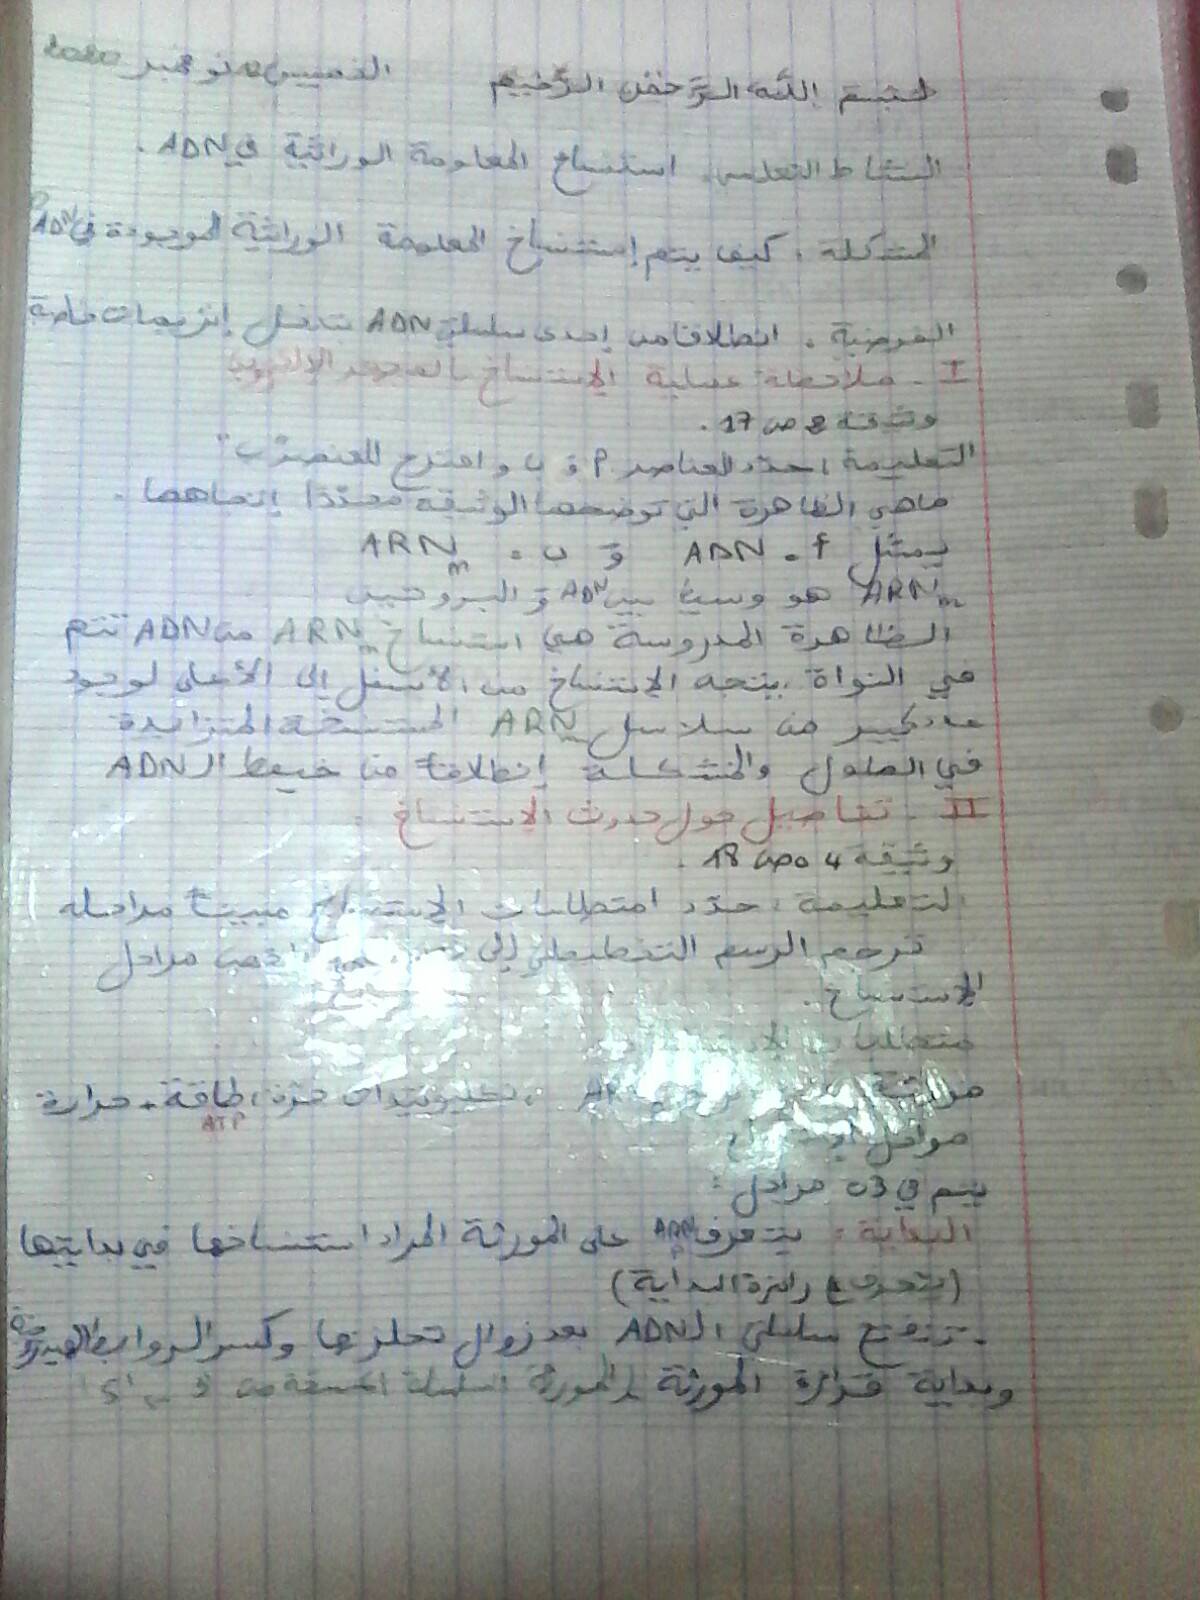 بسم الله الرحمن الرحيم الخميس نوفمبر 2020
النشاط التعلمي. استنساخ المعلومة الوراثية في ADN.
المشكلة : كيف يتم إستنساخ المعلومة الوراثية الموجودة في ADN
الفرضية . انطلاقا من إحدى سلسلتي ADN تدخل إنزيمات خاصة
I - ملاحظة عملية الإستنساخ بالمجهر الإلكتروني
وثيقة ص 17.
التعليمة : حدد العناصر أ و ب و اقترح للعنصر ب
ماهي الظاهرة التي توضحها الوثيقة محددا إتجاهها.
يمثل أ - ADN و ب - ARNm
ARNm هو وسيط بين ADN و البروتين
الظاهرة المدروسة هي استنساخ ARNm من ADN تتم
في النواة . يتجه الإستنساخ من الأسفل إلى الأعلى لوجود
عدد كبير من سلاسل ARNm المستنسخة المتزايدة
في الطول والمتشكلة إنطلاقا من خيط الـ ADN
II - تفاصيل حول حدوث الإستنساخ .
وثيقة 4 ص 18.
التعليمة : حدد متطلبات الإستنساخ مبينا مراحله
ترجم الرسم التخطيطي إلى مراحل
الإستنساخ.
متطلبات
مورثة ، نكليوتيدات حرة ، طاقة - حرارة
ATP
مراحل
يتم في 03 مراحل :
البداية : يتعرف على المورثة المراد استنساخها في بدايتها
(رامزة البداية)
- تنفتح سلسلتي الـ ADN بعد زوال تحلزنها وكسر الروابط
وبداية قراءة المورثة السلسلة من